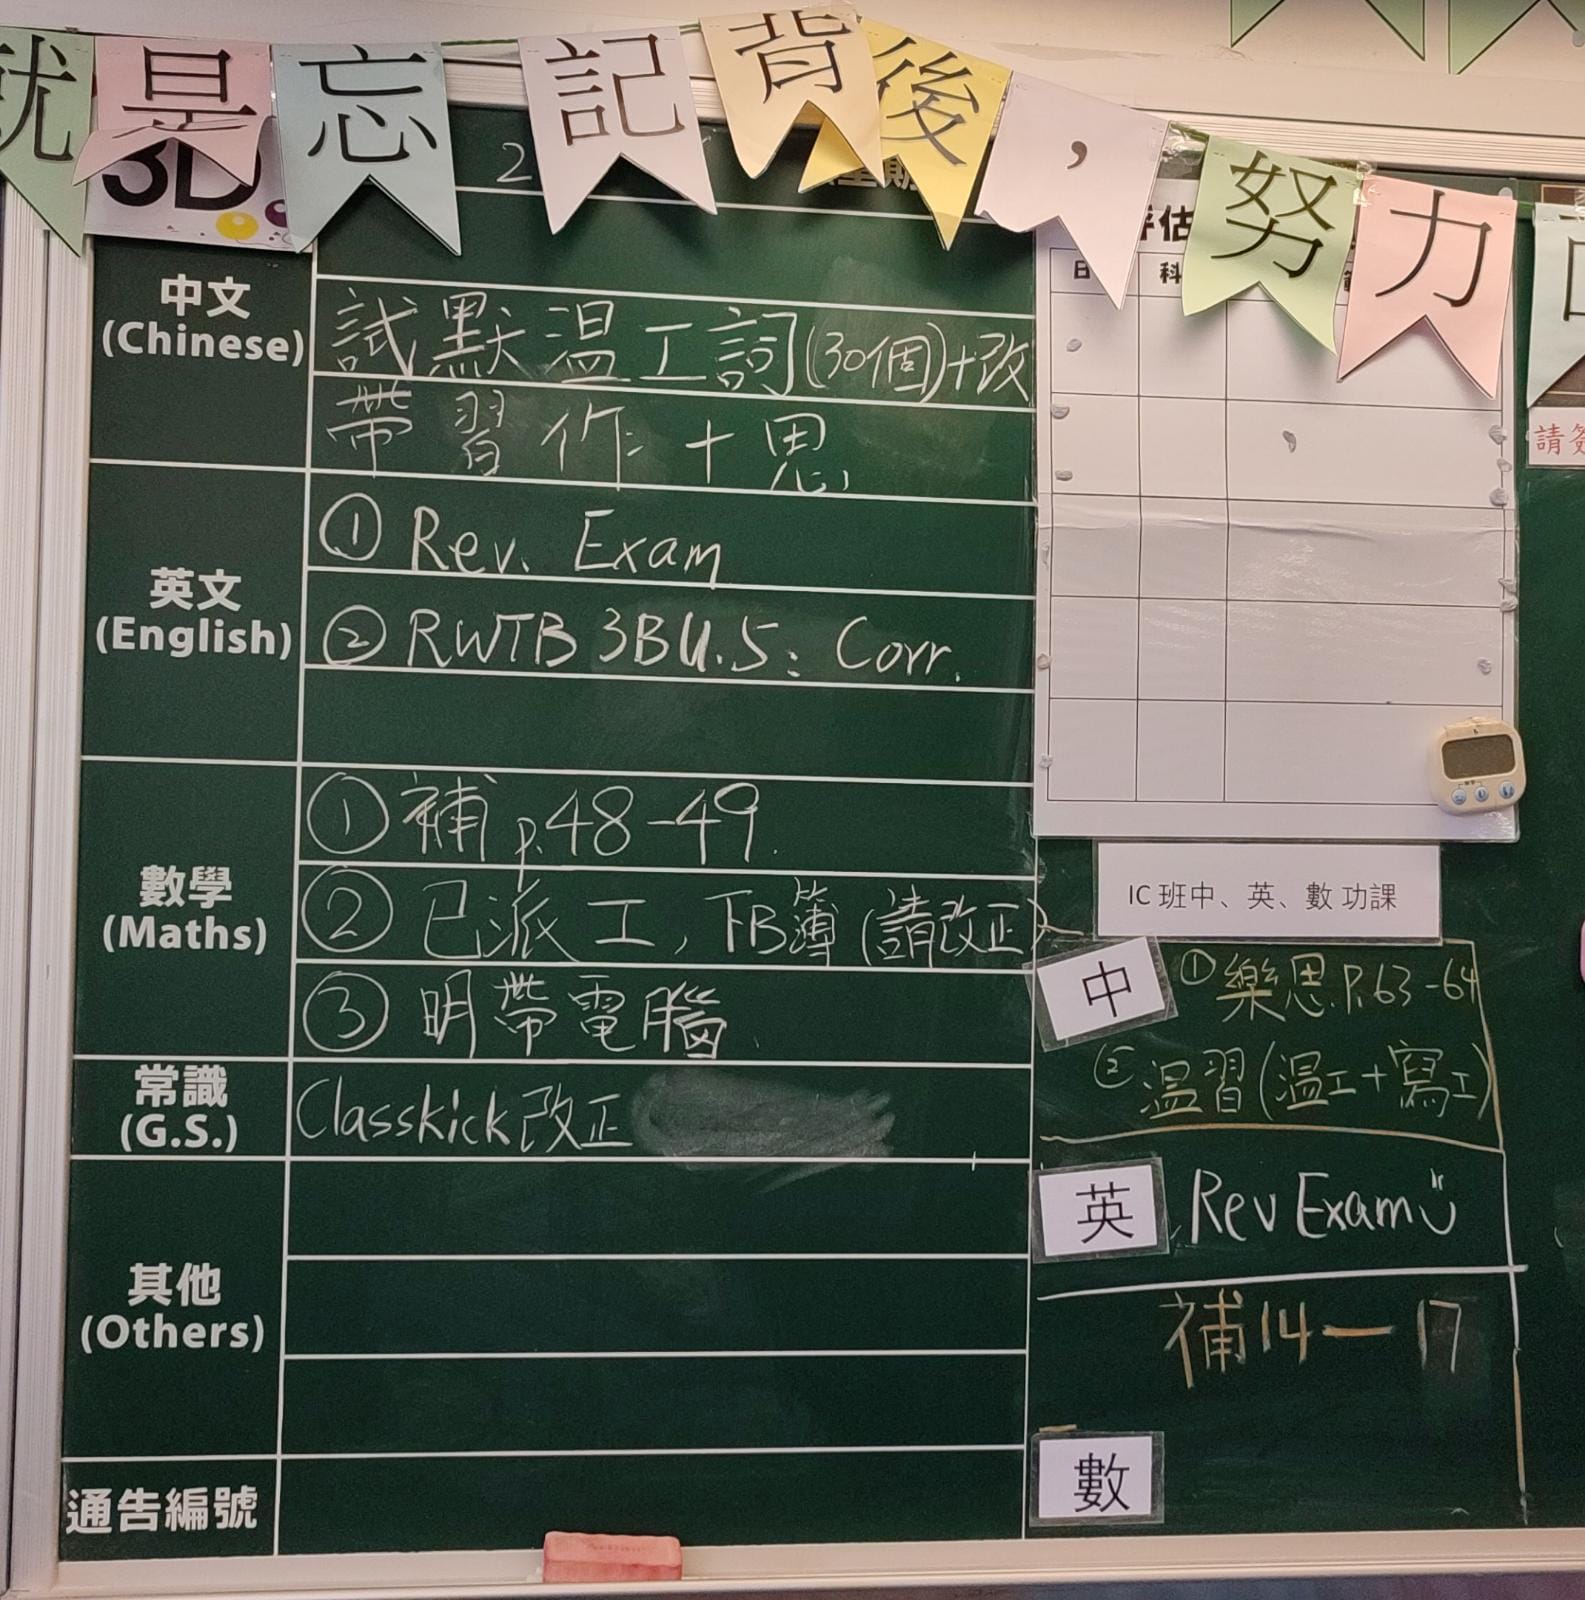 就是忘記背後，努力
3D
2
評估
日 科
請簽
中文
(Chinese)
試默溫工詞(30個)+改
帶習作+思
英文
(English)
① Rev. Exam
② RWTB 3BU.5: Corr.
數學
(Maths)
① 補 p.48-49.
② 已派工, TB簿 (請改正)
③ 明帶電腦.
常識
(G.S.)
Classkick 改正
其他
(Others)
通告編號
IC 班中、英、數 功課
中
① 樂思 P.63-64
② 溫習(溫工+寫工)
英
Rev Exam
補14—17
數